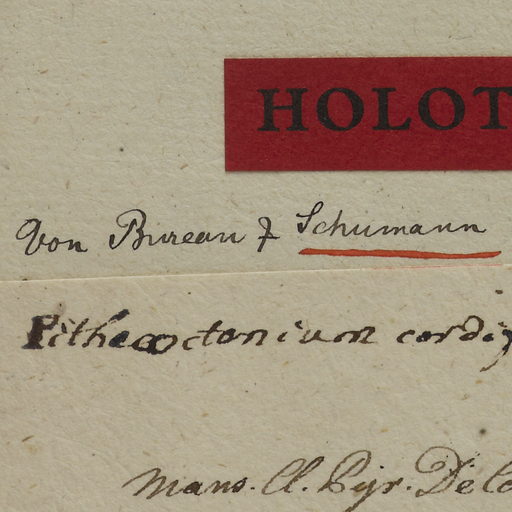 HOLOT
Von Bureau & Schumann
Pithecoctonium cordi
Mans. Cl. Pyr. DeCa